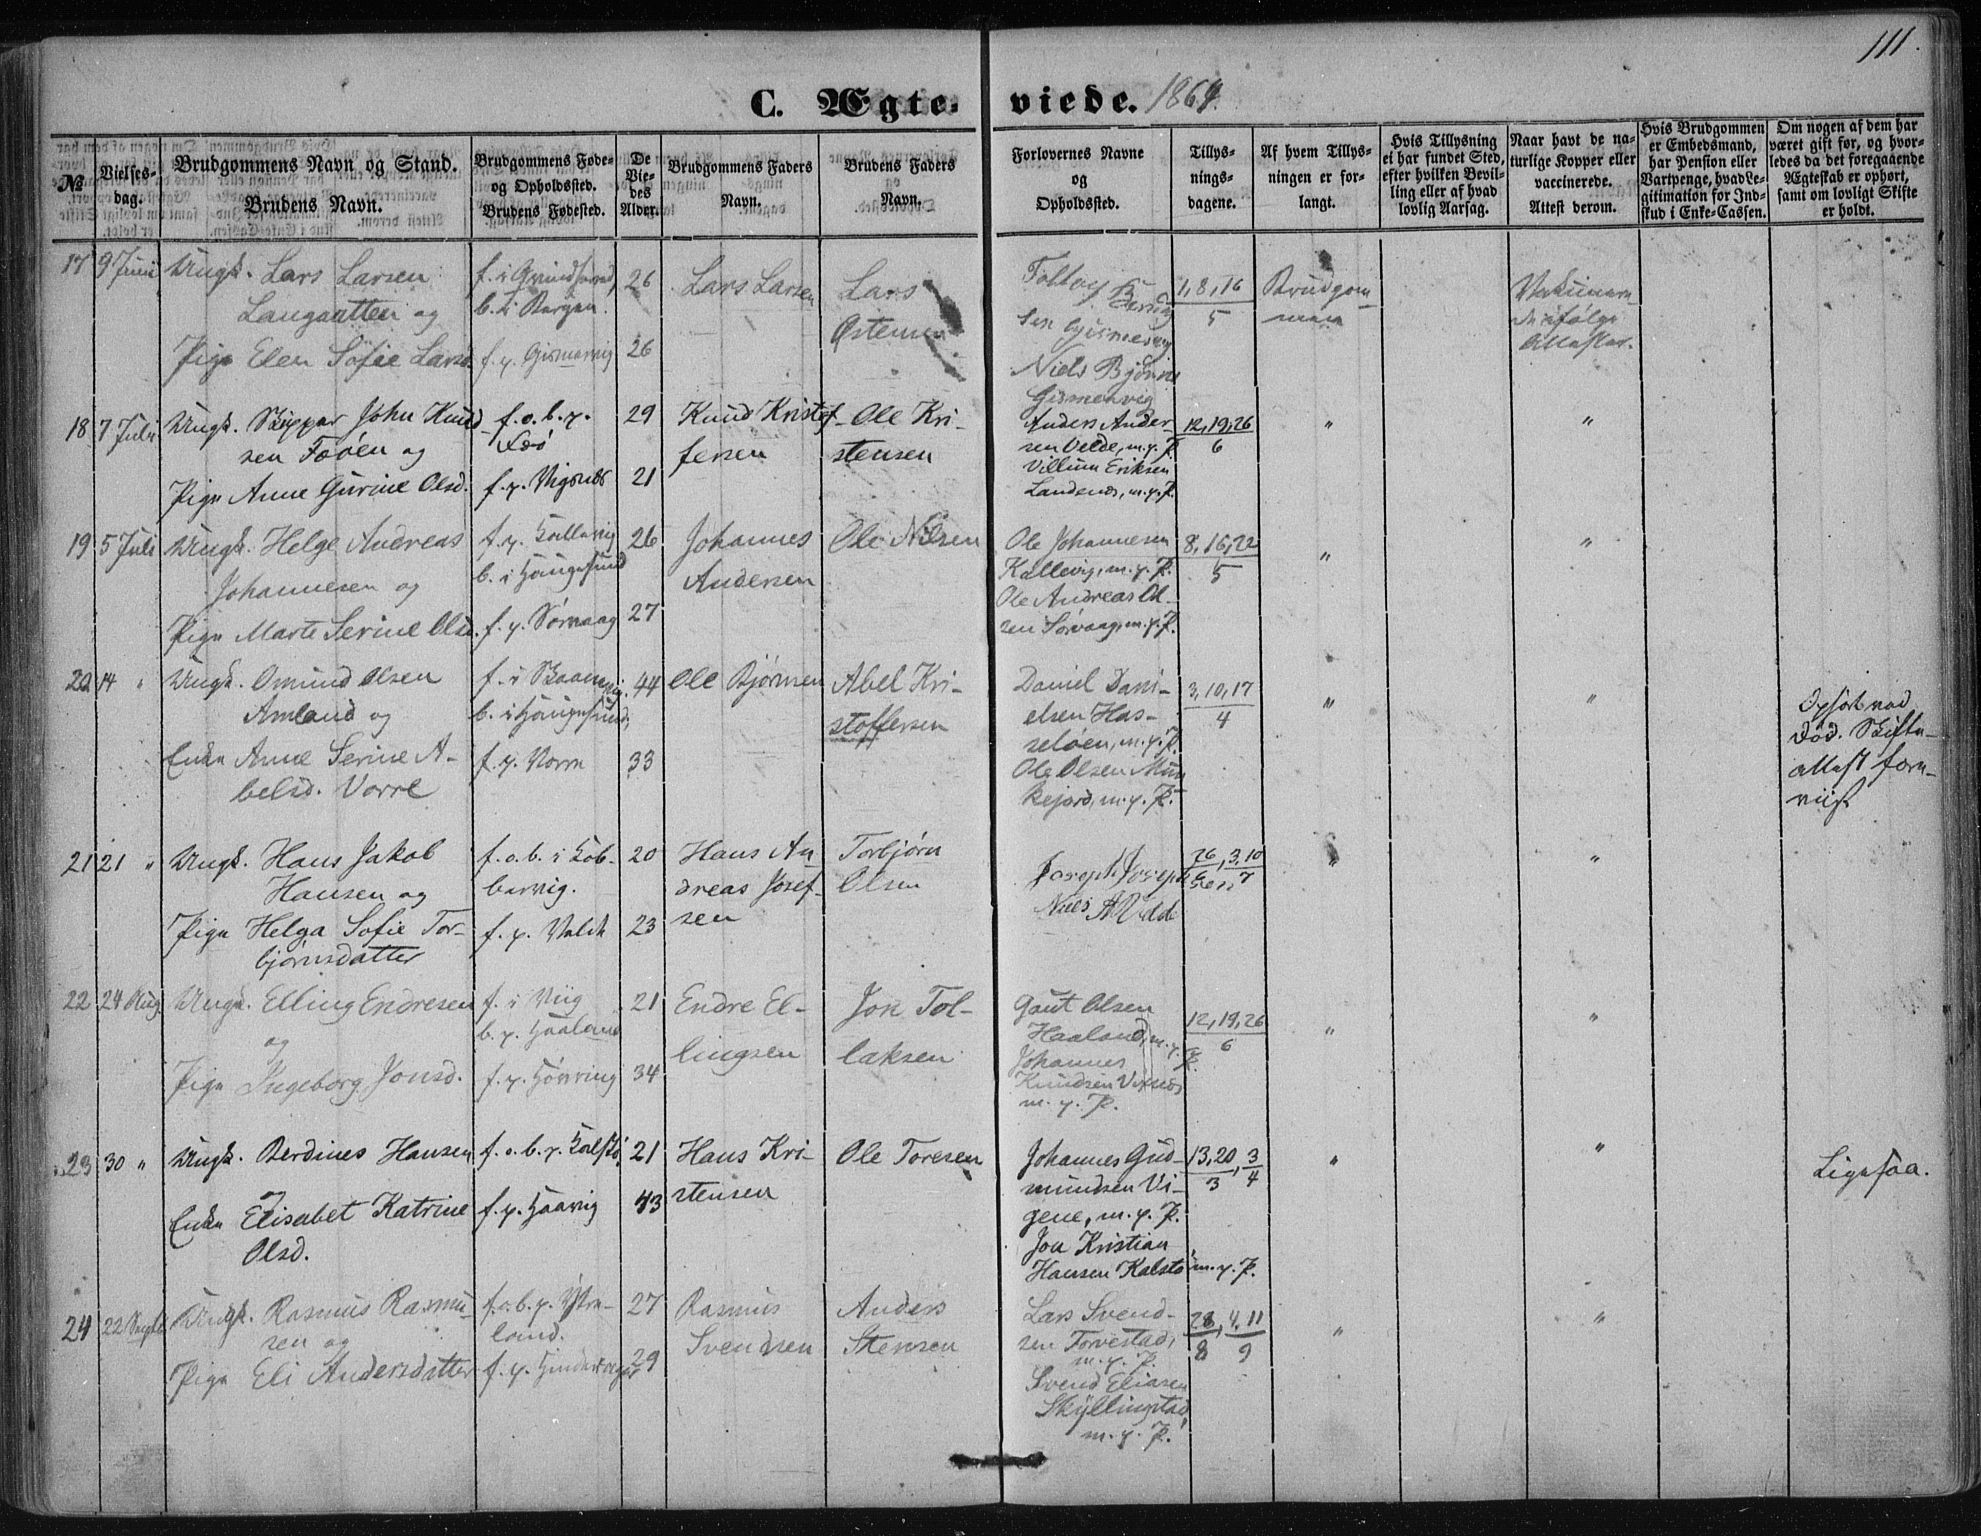 111.
C. Ægte- viede. 1864.
№
Vielses-
dag.
Brudgommens Navn og Stand.
Brudens Navn.
Brudgommens Føde-
og Opholdssted.
Brudens Fødested.
De
Vie-
des
Alder.
Brudgommens Faders
Navn.
Brudens Faders
Navn.
Forlovernes Navne
og
Opholdssted.
Tillys-
nings-
dagene.
Af hvem Tillys-
ningen er for-
langt.
Hvis Tillysning
ei har fundet Sted,
efter hvilken Bevil-
ling eller af hvad
lovlig Aarsag.
Naar havt de na-
turlige Kopper eller
vaccinerede.
Attest derom.
Hvis Brudgommen
er Embedsmand,
har Pension eller
Vartpenge, hvad Le-
gitimation for Ind-
skud i Enke-Cassen.
Om nogen af dem har
været gift før, og hvor-
ledes da det foregaaende
Ægteskab er ophørt,
samt om lovligt Skifte
er holdt.
17 9 Juni Ungk. Lars Larsen
Langaatten og
Pige Elen Sofie Larsd.
b. i Bergen.
f. p. Gismervig
26
26
Lars Larsen
Lars
Østensen
Niels Bjørnsen
Gismervig
1, 8, 16
5
Brudgom-
men
18 7 Juli Ungk. Skipper John Knud-
sen Foöen og
Pige Anne Gurine Olsd.
f. o. b. p.
Foö
f. p. Vigsnes
29
21
Knud Kristof-
fersen
Ole Kri-
stensen
Anders Ander-
sen Velde, m. p. P.
Villum Eriksen
Landenes, m. p. P.
12, 19, 26
6
"
"
19 5 Juli Ungk. Helge Andreas
Johannesen og
Pige Marte Serine Olsd.
f. p. Kallevig
b. i Haugesund
f. p. Sørvaag
26
27
Johannes
Andersen
Ole Nilsen
Ole Johannesen
Kallevig, m. p. P.
Ole Andreas Ol-
sen Sørvaag, m. p. P.
8, 16, 22
5
"
"
20 14 " Ungk. Omund Olsen
Amland og
Enke Anne Serine A-
belsd. Vorre
b. i Haugesund
f. p. Vorre
44
33
Ole Bjørnsen
Abel Kri-
stoffersen
Daniel Dani-
elsen Has-
seløen, m. p. P.
Ole Olsen Mun-
kejord, m. p. P.
3, 10, 17
4
"
"
Ophørt ved
Død. Skifte-
attest frem-
viist
21 21 " Ungk. Hans Jakob
Hansen og
Pige Helga Sofie Tor-
bjørnsdatter
f. o. b. i Kob-
bervig.
f. p. Valde
20
23
Hans An
dreas Josef-
sen
Torbjørn
Olsen
Joseph Joseph
sen
26, 3, 10
6 7
"
"
22 24 Aug. Ungk. Elling Endresen
og
Pige Ingeborg Jonsd.
f. i Viig
b. p. Haaland
f. p. Høvring
21
34
Endre El-
lingsen
Jon Tol-
laksen
Gaut Olsen
Haaland, m. p. P.
Johannes
Knudsen
m. p. P.
12, 19, 26
6
"
"
23 30 " Ungk. Berdines Hansen
og
Enke Elisabet Katrine
Olsd.
f. o. b. p. Kalstø
f. p. Haavig
21
43
Hans Kri-
stensen
Ole Toresen
Johannes Gud-
mundsen Vi-
gene, m. p. P.
Jon Kristian
Hansen Kalstø m. p. P.
13, 20, 3
3 4
"
"
Ligesaa.
24 22 Septb. Ungk. Rasmus Rasmu-
sen og
Pige Eli Andersdatter
f. o. b. p. Ytre-
land.
f. p. Hinderager
27
29
Rasmus
Svendsen
Anders
Stensen
Lars Svend-
sen Torvestad,
m. p. P.
Svend Eliasen
Skyllingstad,
m. p. P.
28, 4, 11
8 9
"
"